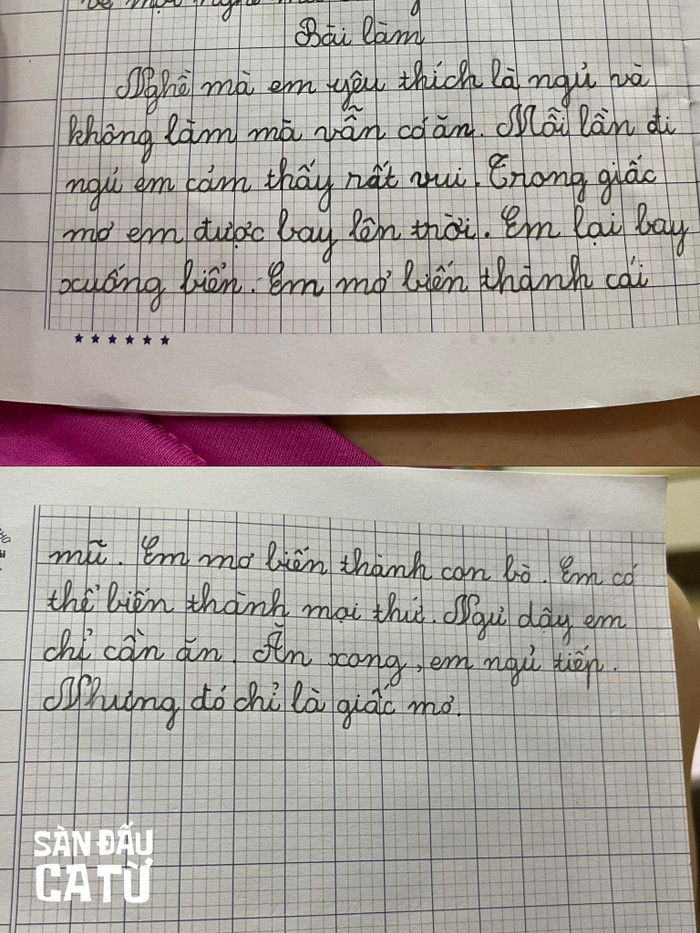 Bài làm
Nghề mà em yêu thích là ngủ và
không làm mà vẫn có ăn. Mỗi lần đi
ngủ em cảm thấy rất vui. Trong giấc
mơ em được bay lên trời. Em lại bay
xuống biển. Em mơ biến thành cái
mũ. Em mơ biến thành con bò. Em có
thể biến thành mọi thứ. Ngủ dậy em
chỉ cần ăn. Ăn xong, em ngủ tiếp.
Nhưng đó chỉ là giấc mơ.
SÀN ĐẤU
CA TỪ